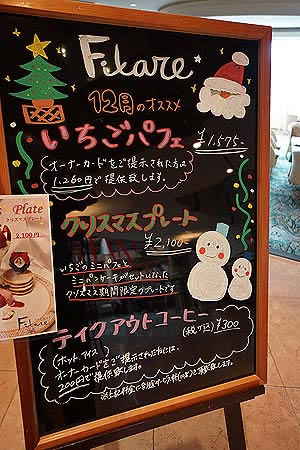 Filare
12月のオススメ
いちごパフェ
¥1,575-
オーナーカードをご提示された方は
1,260円で提供致します。
クリスマスプレート
¥2,100-
いちごのミニパフェと
ミニパンケーキがセットになった
クリスマス期間限定のプレートです
テイクアウトコーヒー
(税込) ¥300
(ホット、アイス)
オーナーカードをご提示された方には、
200円で提供致します。
Plate
クリスマスプレート
2,100円